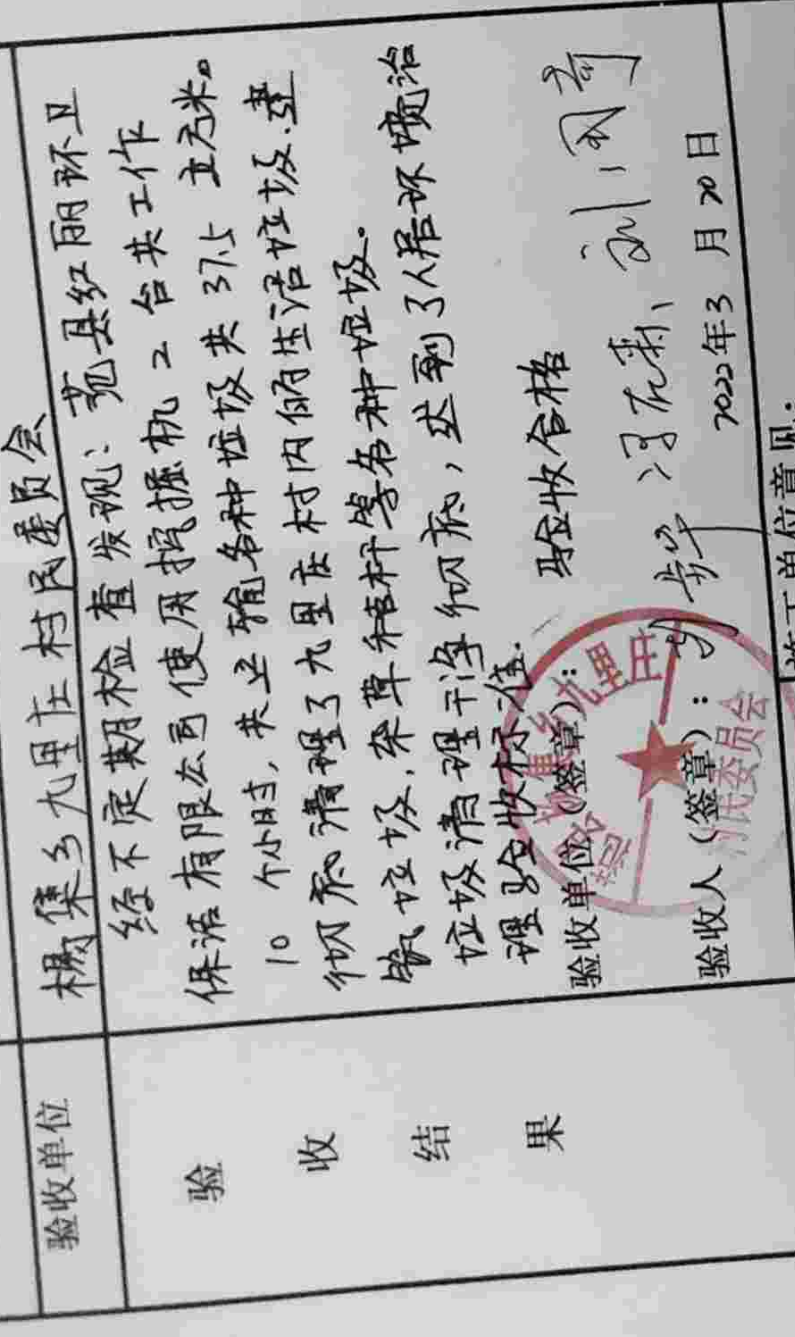 验收单位
杨集乡九里庄村民委员会
验收结果
经不定期检查发现：范县红丽环卫
保洁有限公司使用挖掘机2台共工作
10个小时，共运输各种垃圾共37.5立方米。
彻底清理了九里庄村内的生活垃圾、建
筑垃圾、杂草秸杆等各种垃圾。
垃圾清理干净彻底，达到了人居环境治
理验收标准。
验收单位（签章）： 验收合格
验收人（签章）：
2022年3月20日
施工单位意见：
杨集乡九里庄
村民委员会